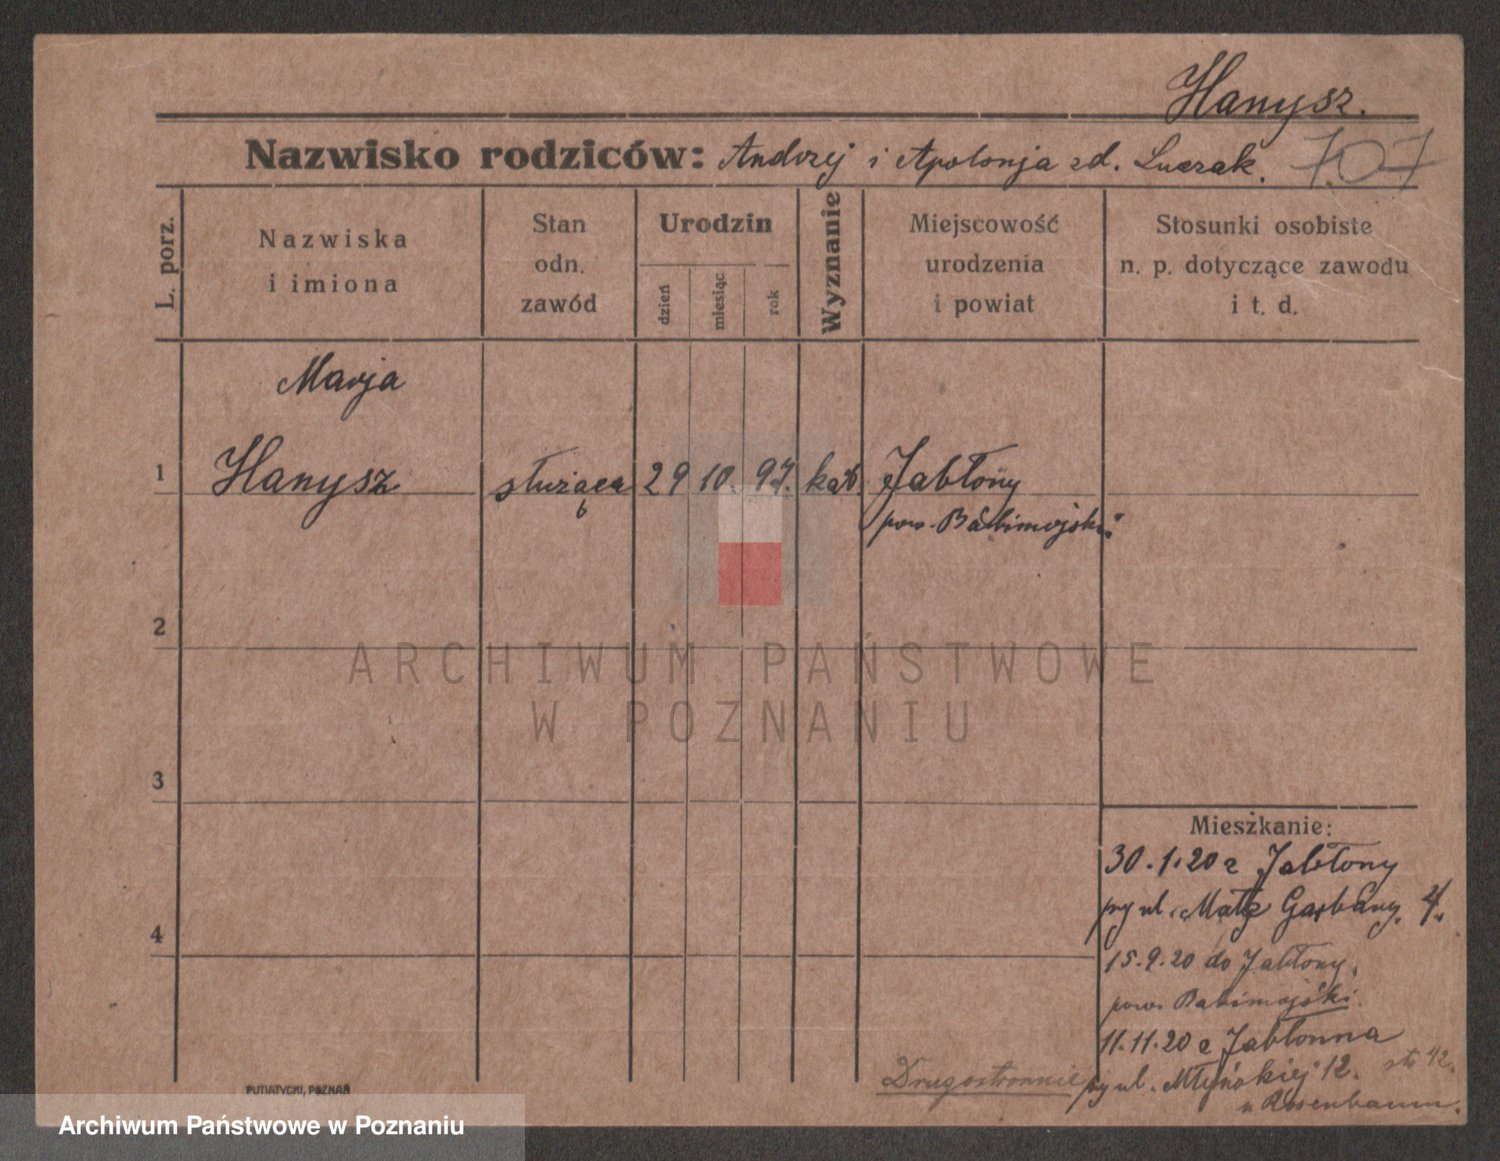 Hanysz.
Nazwisko rodziców: Andrzej i Apolonja zd. Luczak. 707
L. porz.
Nazwiska
i imiona
Stan
odn.
zawód
Urodzin
dzień
miesiąc
rok
Wyznanie
Miejscowość
urodzenia
i powiat
Stosunki osobiste
n. p. dotyczące zawodu
i t. d.
Marja
1 Hanysz służąca 29 10. 97. kat. Jabłony
pow. Babimojski
2
ARCHIWUM PAŃSTWOWE
W POZNANIU
3
Mieszkanie:
30.1.20 z Jabłony
4
przy ul. Małe Garbary 4.
15.9.20 do Jabłony,
pow. Babimojski.
11.11.20 z Jabłonna
Drugostronnie przy ul. Młyńskiej 12. str 42.
u Rosenbaum.
PUTIATYCKI, POZNAŃ
Archiwum Państwowe w Poznaniu